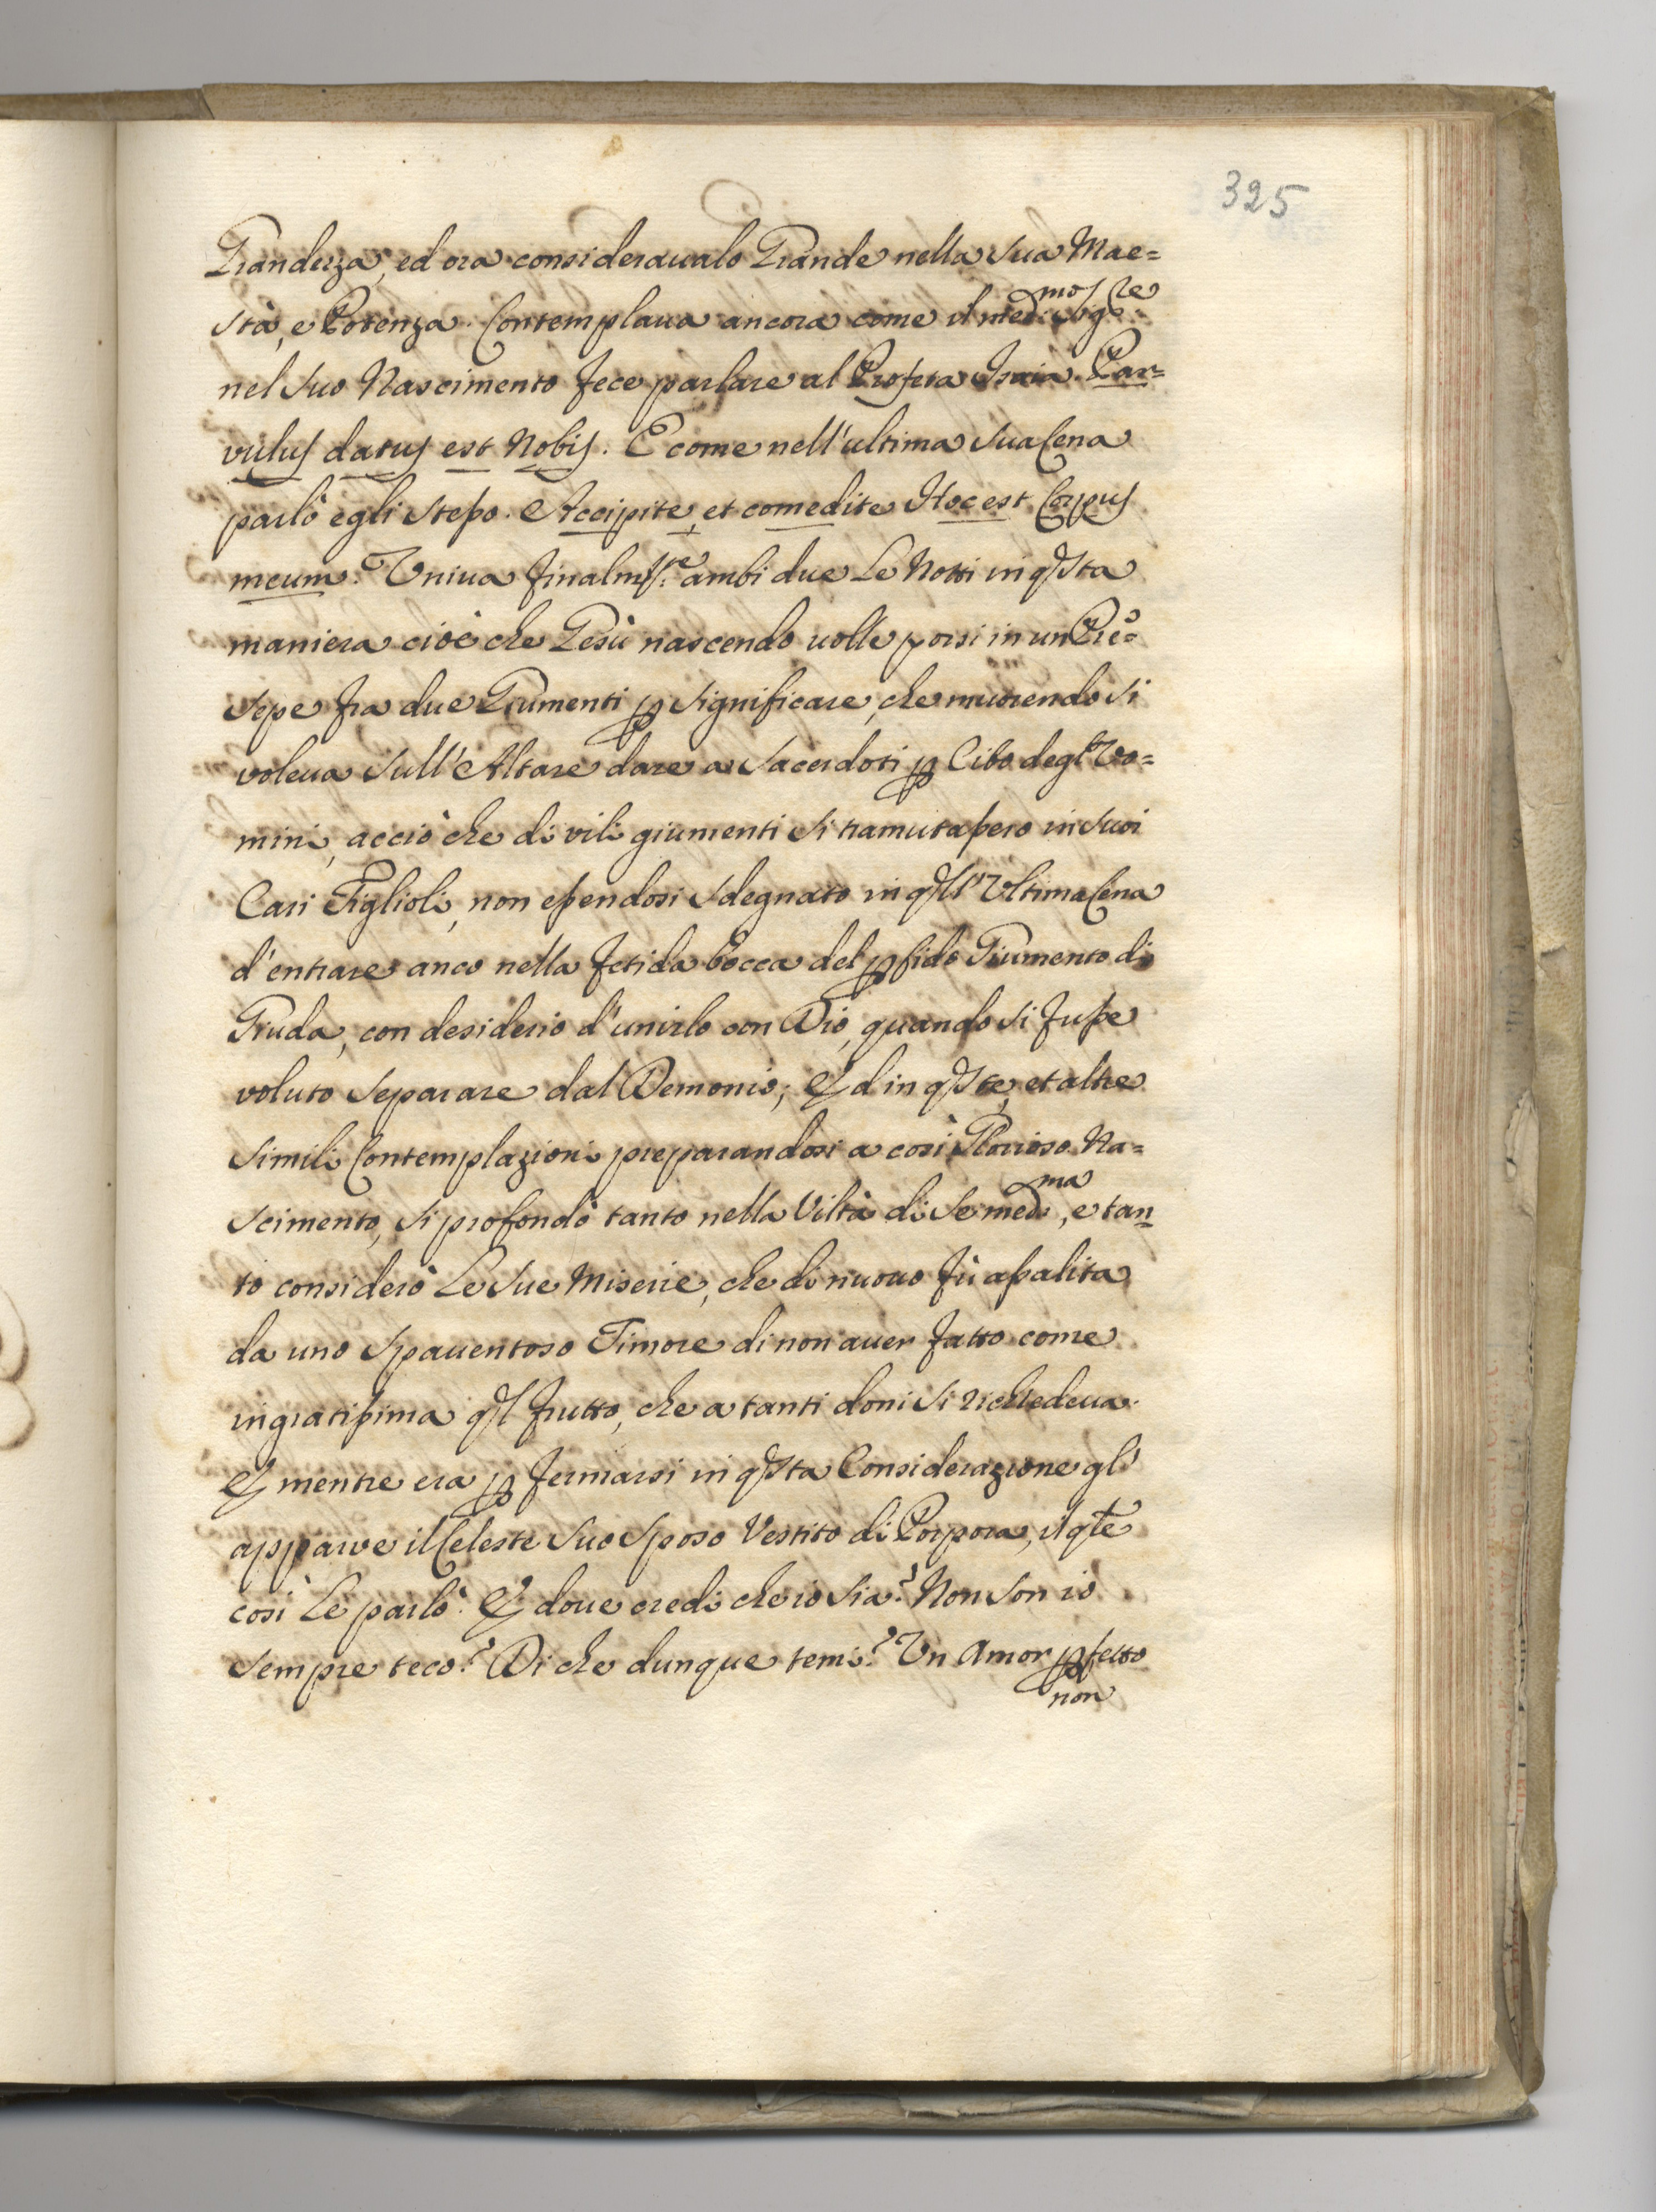 325
Grandezza, ed ora consideraualo Grande nella sua Mae=
stà, e Potenza. Contemplaua ancora come il med:mo Sig:re
nel suo Nascimento fece parlare al Profeta Isaia. Par=
vulus datus est Nobis. E come nell'ultima sua Cena
parlò egli stesso. Accipite, et comedite Hoc est Corpus
meum. Vniua finalm:te ambi due Le Notti in qsta
maniera cioè che Gesù nascendo uolle porsi in un Pre=
sepe fra due Giumenti p significare, che muorendo si
voleua sull'Altare dare a Sacerdoti p Cibo degl'Vo=
mini, acciò che di vili giumenti si tramutassero in suoi
Cari Figlioli, non essendosi sdegnato in qll'Vltima Cena
d'entrare anco nella fetida bocca del pfido Giumento di
Giuda, con desiderio d'unirlo con Dio, quando si fusse
voluto separare dal Demonio; Ed in qste, et altre
simili Contemplazioni preparandosi a così Glorioso Na=
scimento, si profondò tanto nella Viltà di se med:ma, e tan=
to considerò Le sue Miserie, che di nuouo fù assalita
da uno spauentoso Timore di non auer fatto come
ingratissima ql frutto, che a tanti doni si richiedeua.
E mentre era p fermarsi in qsta Considerazione gl'
apparue il Celeste suo Sposo Vestito di Porpora, il qle
così Le parlò. E doue credi che io sia? Non son io
sempre teco? Di che dunque temi? Vn Amor pfetto
non